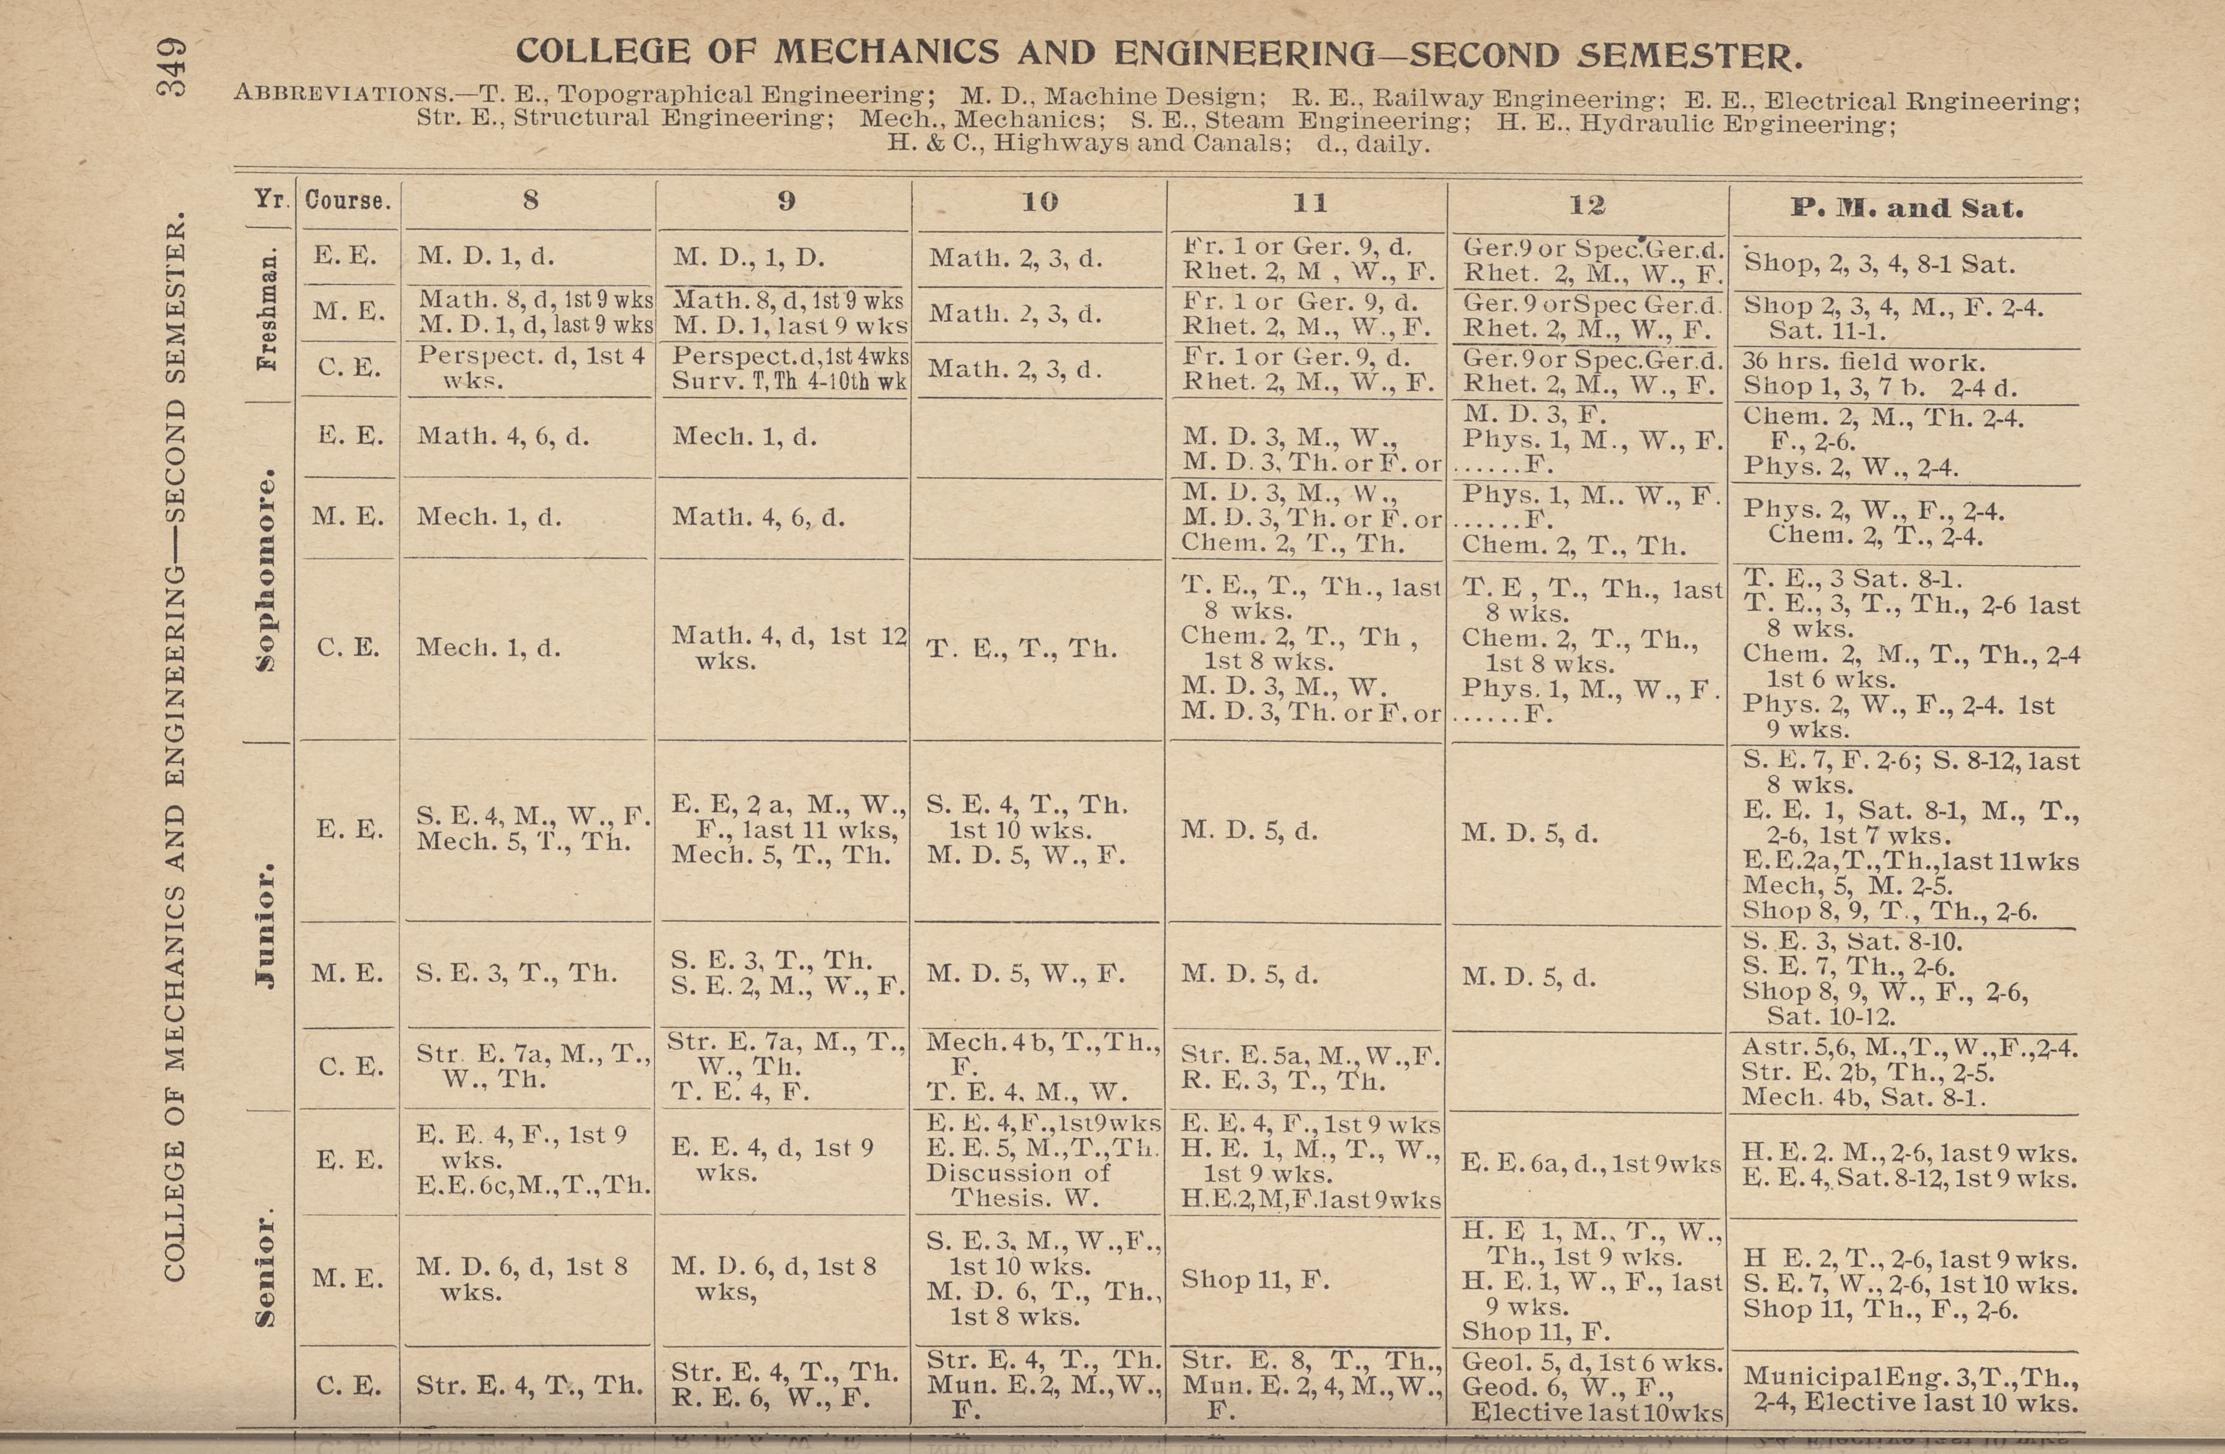 349
COLLEGE OF MECHANICS AND ENGINEERING—SECOND SEMESTER.
COLLEGE OF MECHANICS AND ENGINEERING—SECOND SEMESTER.
ABBREVIATIONS.—T. E., Topographical Engineering; M. D., Machine Design; R. E., Railway Engineering; E. E., Electrical Rngineering;
Str. E., Structural Engineering; Mech., Mechanics; S. E., Steam Engineering; H. E., Hydraulic Engineering;
H. & C., Highways and Canals; d., daily.
Yr. Course. 8 9 10 11 12 P. M. and Sat.
Freshman.
E. E.
M. D. 1, d.
M. D., 1, D.
Math. 2, 3, d.
Fr. 1 or Ger. 9, d.
Rhet. 2, M , W., F.
Ger.9 or Spec.Ger.d.
Rhet. 2, M., W., F.
Shop, 2, 3, 4, 8-1 Sat.
M. E.
Math. 8, d, 1st 9 wks
M. D. 1, d, last 9 wks
Math. 8, d, 1st 9 wks
M. D. 1, last 9 wks
Math. 2, 3, d.
Fr. 1 or Ger. 9, d.
Rhet. 2, M., W., F.
Ger. 9 or Spec Ger.d.
Rhet. 2, M., W., F.
Shop 2, 3, 4, M., F. 2-4.
Sat. 11-1.
C. E.
Perspect. d, 1st 4
wks.
Perspect.d,1st 4wks
Surv. T, Th 4-10th wk
Math. 2, 3, d.
Fr. 1 or Ger. 9, d.
Rhet. 2, M., W., F.
Ger. 9 or Spec. Ger.d.
Rhet. 2, M., W., F.
36 hrs. field work.
Shop 1, 3, 7 b. 2-4 d.
Sophomore.
E. E.
Math. 4, 6, d.
Mech. 1, d.
M. D. 3, M., W.,
M. D. 3, Th. or F. or
M. D. 3, F.
Phys. 1, M., W., F.
......F.
Chem. 2, M., Th. 2-4.
F., 2-6.
Phys. 2, W., 2-4.
M. E.
Mech. 1, d.
Math. 4, 6, d.
M. D. 3, M., W.,
M. D. 3, Th. or F. or
Chem. 2, T., Th.
Phys. 1, M.. W., F.
......F.
Chem. 2, T., Th.
Phys. 2, W., F., 2-4.
Chem. 2, T., 2-4.
C. E.
Mech. 1, d.
Math. 4, d, 1st 12
wks.
T. E., T., Th.
T. E., T., Th., last
8 wks.
Chem. 2, T., Th ,
1st 8 wks.
M. D. 3, M., W.
M. D. 3, Th. or F. or
T. E , T., Th., last
8 wks.
Chem. 2, T., Th.,
1st 8 wks.
Phys. 1, M., W., F.
......F.
T. E., 3 Sat. 8-1.
T. E., 3, T., Th., 2-6 last
8 wks.
Chem. 2, M., T., Th., 2-4
1st 6 wks.
Phys. 2, W., F., 2-4. 1st
9 wks.
Junior.
E. E.
S. E. 4, M., W., F.
Mech. 5, T., Th.
E. E, 2 a, M., W.,
F., last 11 wks,
Mech. 5, T., Th.
S. E. 4, T., Th.
1st 10 wks.
M. D. 5, W., F.
M. D. 5, d.
M. D. 5, d.
S. E. 7, F. 2-6; S. 8-12, last
8 wks.
E. E. 1, Sat. 8-1, M., T.,
2-6, 1st 7 wks.
E.E.2a,T.,Th.,last 11wks
Mech, 5, M. 2-5.
Shop 8, 9, T., Th., 2-6.
M. E.
S. E. 3, T., Th.
S. E. 3, T., Th.
S. E. 2, M., W., F.
M. D. 5, W., F.
M. D. 5, d.
M. D. 5, d.
S. E. 3, Sat. 8-10.
S. E. 7, Th., 2-6.
Shop 8, 9, W., F., 2-6,
Sat. 10-12.
C. E.
Str. E. 7a, M., T.,
W., Th.
Str. E. 7a, M., T.,
W., Th.
T. E. 4, F.
Mech. 4 b, T., Th.,
F.
T. E. 4, M., W.
Str. E. 5a, M., W., F.
R. E. 3, T., Th.
Astr. 5,6, M.,T., W.,F.,2-4.
Str. E. 2b, Th., 2-5.
Mech. 4b, Sat. 8-1.
Senior.
E. E.
E. E. 4, F., 1st 9
wks.
E.E.6c,M.,T.,Th.
E. E. 4, d, 1st 9
wks.
E. E. 4,F.,1st9wks
E. E. 5, M.,T.,Th.
Discussion of
Thesis. W.
E. E. 4, F., 1st 9 wks
H. E. 1, M., T., W.,
1st 9 wks.
H.E.2,M,F.last9wks
E. E. 6a, d., 1st 9wks
H. E. 2. M., 2-6, last 9 wks.
E. E. 4, Sat. 8-12, 1st 9 wks.
M. E.
M. D. 6, d, 1st 8
wks.
M. D. 6, d, 1st 8
wks,
S. E. 3, M., W., F.,
1st 10 wks.
M. D. 6, T., Th.,
1st 8 wks.
Shop 11, F.
H. E 1, M., T., W.,
Th., 1st 9 wks.
H. E. 1, W., F., last
9 wks.
Shop 11, F.
H E. 2, T., 2-6, last 9 wks.
S. E. 7, W., 2-6, 1st 10 wks.
Shop 11, Th., F., 2-6.
C. E.
Str. E. 4, T., Th.
Str. E. 4, T., Th.
R. E. 6, W., F.
Str. E. 4, T., Th.
Mun. E. 2, M., W.,
F.
Str. E. 8, T., Th.,
Mun. E. 2, 4, M., W.,
F.
Geol. 5, d, 1st 6 wks.
Geod. 6, W., F.,
Elective last 10 wks
Municipal Eng. 3, T., Th.,
2-4, Elective last 10 wks.